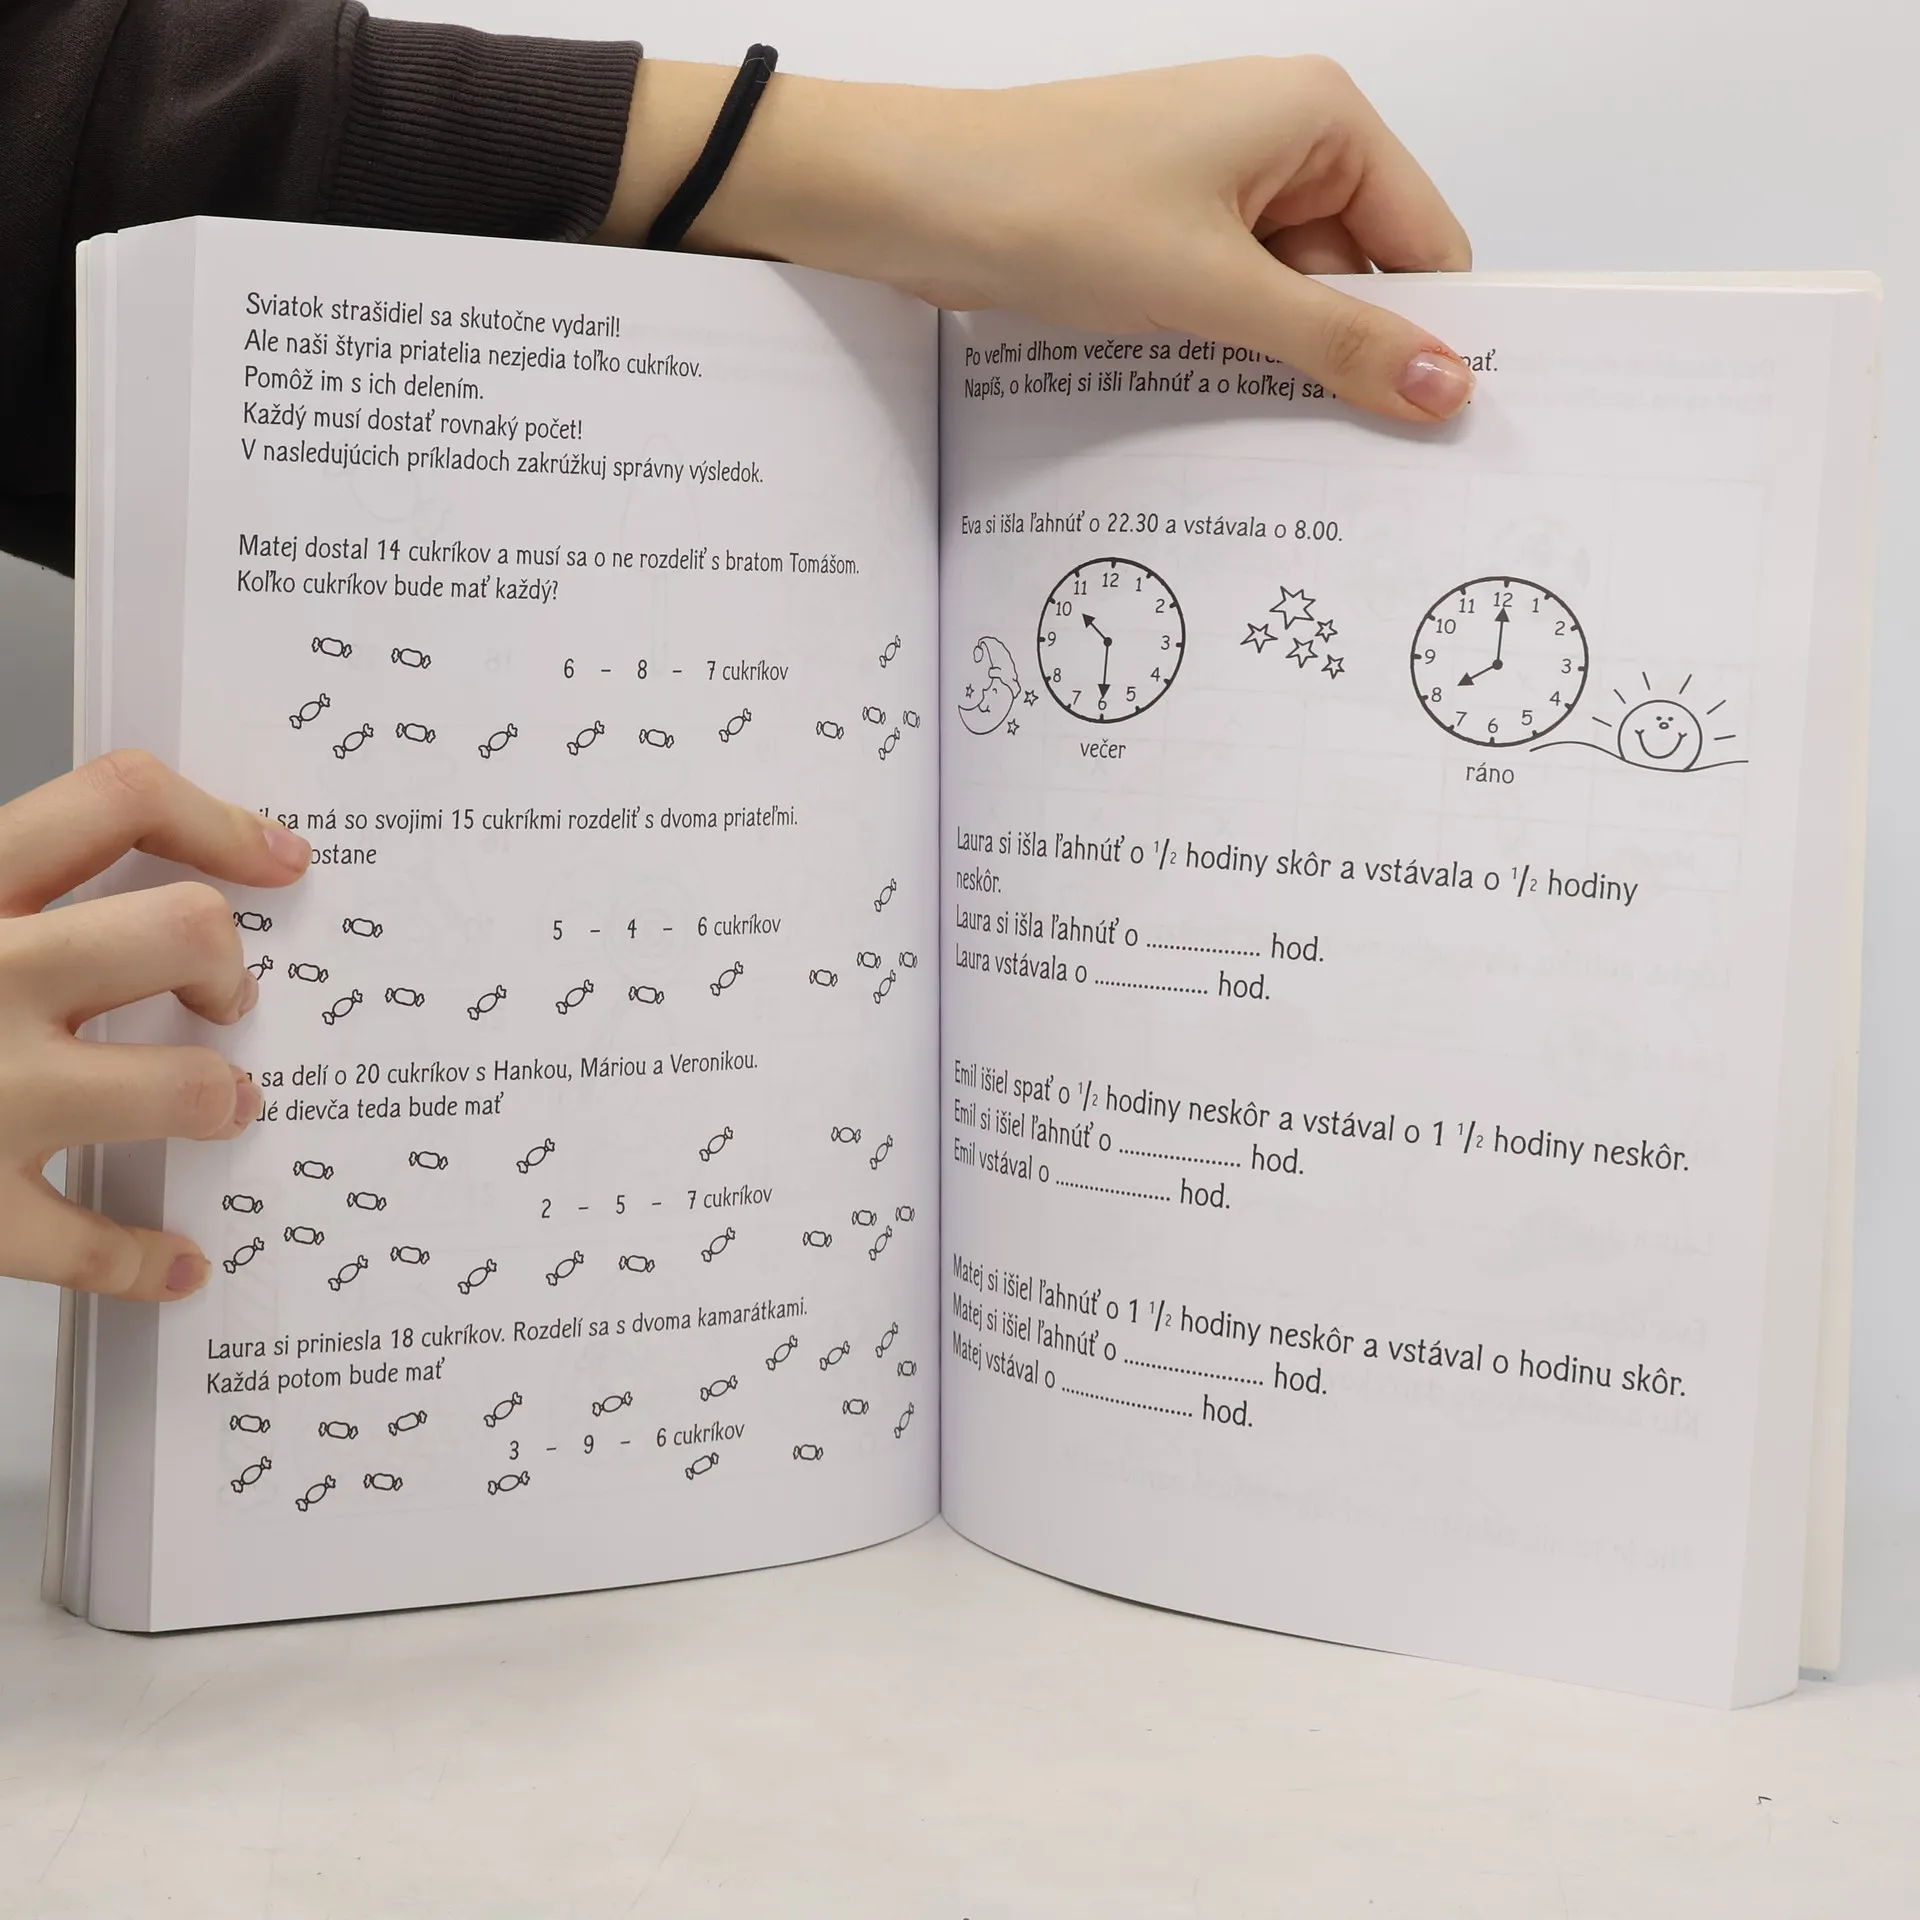 Sviatok strašidiel sa skutočne vydaril!
Ale naši štyria priatelia nezjedia toľko cukríkov.
Pomôž im s ich delením.
Každý musí dostať rovnaký počet!
V nasledujúcich príkladoch zakrúžkuj správny výsledok.
Matej dostal 14 cukríkov a musí sa o ne rozdeliť s bratom Tomášom.
Koľko cukríkov bude mať každý?
6 - 8 - 7 cukríkov
sa má so svojimi 15 cukríkmi rozdeliť s dvoma priateľmi.
5 - 4 - 6 cukríkov
sa delí o 20 cukríkov s Hankou, Máriou a Veronikou.
dievča teda bude mať
2 - 5 - 7 cukríkov
Laura si priniesla 18 cukríkov. Rozdelí sa s dvoma kamarátkami.
Každá potom bude mať
3 - 9 - 6 cukríkov
Po veľmi dlhom večere sa deti
Napíš, o koľkej si išli ľahnúť a o koľkej sa
Eva si išla ľahnúť o 22.30 a vstávala o 8.00.
12 1 2 3 4 5 6 7 8 9 10 11
12 1 2 3 4 5 6 7 8 9 10 11
večer
ráno
Laura si išla ľahnúť o 1/2 hodiny skôr a vstávala o 1/2 hodiny
neskôr.
Laura si išla ľahnúť o .................... hod.
Laura vstávala o .................... hod.
Emil išiel spať o 1/2 hodiny neskôr a vstával o 1 1/2 hodiny neskôr.
Emil si išiel ľahnúť o .................... hod.
Emil vstával o .................... hod.
Matej si išiel ľahnúť o 1 1/2 hodiny neskôr a vstával o hodinu skôr.
Matej si išiel ľahnúť o .................... hod.
Matej vstával o .................... hod.